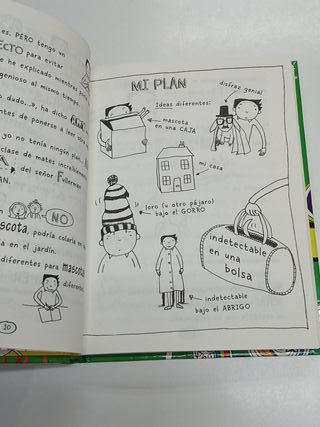 es. PERO tengo un
ECTO para evitar
e he explicado mientras
genioso al mismo tiempo.
dudo..., ha dicho
antes de ponerse a leer
yo no tenía ningún plan.
clase de mates
del señor Fullerman
AN.
NO
mascota, podría colarla en
a en el jardín.
diferentes para mascota
diferentes
10
MI PLAN
Ideas diferentes:
disfraz genial
mascota
en una CAJA
mi casa
loro (u otro pájaro)
bajo el GORRO
indetectable
en una
bolsa
indetectable
bajo el ABRIGO